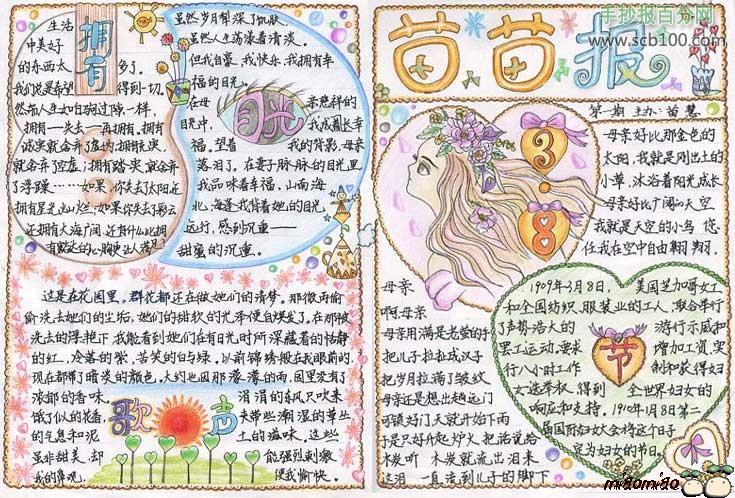 生活
中美好
的东西太
多了。
拥有
虽然人生荡漾着清淡。
但我自豪,我快乐,我拥有幸
福的目光。
在母
亲慈祥的
目光中,
我成着长幸
福,望着
我的背影,母亲
落泪了。在妻子脉脉的目光里
我品味着幸福,山南海
北,海莲我背着她的目光
远行,感到沉重——
甜蜜的沉重。
目光
我们总是希望
得到一切。
然而人生如白驹过隙一样,
拥有—失去—再拥有。拥有
就会弃了空虚;拥有踏实,就会弃
了浮躁……如果,你失去太阳还
拥有星光
还拥有大海广阔
这是在花园里,群花都还在做她们的清梦。那微雨偷
偷洗去她们的尘垢,她们的甜软的光泽便自焕发了。在那被
洗去的浮艳下,我能看到她们在有日光时所深藏着的恬静
的红,冷落的紫,苦笑的白与绿。以前锦绣般在我眼前的,
现在都带了暗淡的颜色。大约也因那濛濛的雨,园里没了
浓郁的香味。
涓涓的东风只吹来
饿了似的花香,
夹带些潮湿的草丛
的气息和泥
土的滋味。这些
虽非甜美,却
能强烈刺激
我的鼻观,
使我愉快。
歌声
手抄报百分网
www.scb100.com
苗苗报
第一期 主办:苗慧
3
8
节
母亲好比那金色的
太阳,我就是刚出土的
小草,沐浴着阳光成长
母亲好比广阔的天空
我就是天空的小鸟 您
任我在空中自由翱翔.
母亲
啊母亲
母亲用满是老茧的手
把儿子拉扯成汉子
把岁月拉满了皱纹
母亲还是想出趟远门
可锁好门天就开始下雨
于是只好升起炉火 把话说给
木炭听 木炭就流出泪来
这泪 一直流到儿子的脚下
1909年3月8日,美国芝加哥女工
和全国纺织、服装业的工人,联合举行
了声势浩大的
游行示威和
罢工运动。要求
增加工资,实
行八小时工作
制和获得妇
女选举权,得到
全世界妇女的
响应和支持。1910年1月8日第二
届国际妇女大会将这个日子
定为妇女的节日。
miāomiāo